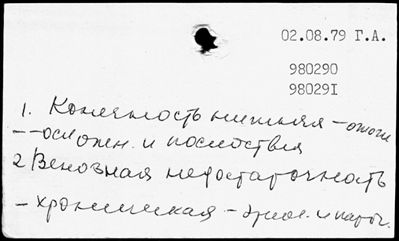 02.08.79 Г.А.
980290
980291
1. Конечность нижняя – ожоги
– – осложн. и последствия
2 Венозная недостаточность
– хроническая – этиол. и патог.